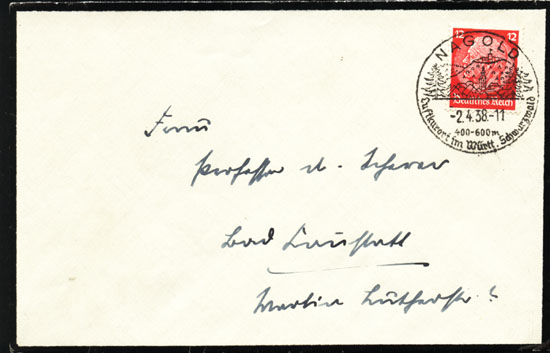 12 12
NAGOLD
Deutsches Reich
-2.4.38.-11
400-600m
Luftkurort im Württ. Schwarzwald
Professor
Bad Cannstatt
Martin Lutherstr